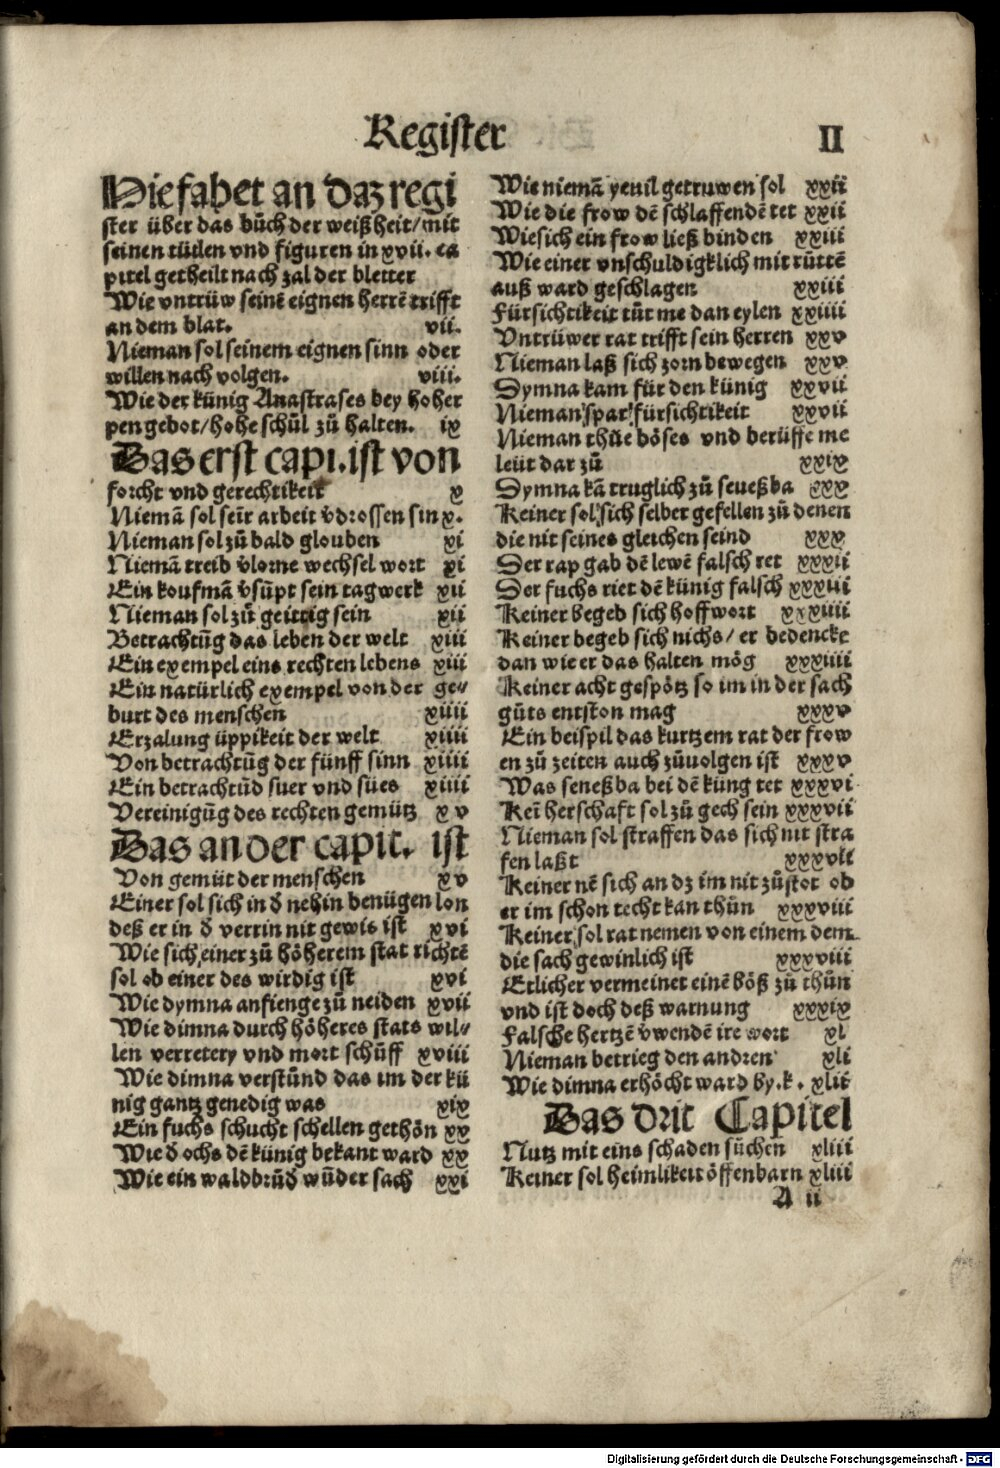 Register
II
Hie fahet an daz regi
ster über das bůch der weißheit/mit
seinen titlen vnd figuren in xvii. ca
pitel getheilt nach zal der bletter
Wie vntrüw seinē eignen herrē trifft
an dem blat. vii.
Nieman sol seinem eignen sinn oder
willen nach volgen. viii.
Wie der künig Anastrases bey hoher
pen gebot/hohe schůl zů halten. ix
Das erst capi. ist von
forcht vnd gerechtikeit x
Niemā sol seīr arbeit v̄drossen sin x.
Nieman sol zů bald glouben xi
Niemā treib v̄lorne wechsel wort xi
Ein koufmā v̄sūpt sein tagwerk xii
Nieman sol zů geittig sein xii
Betrachtūg das leben der welt xiii
Ein exempel eins rechten lebens xiii
Ein natürlich exempel von der ge⸗
burt des menschen xiiii
Erzalung üppikeit der welt xiiii
Von betrachtūg der fünff sinn xiiii
Ein betrachtūd suer vnd sües xiiii
Vereinigūg des rechten gemütz xv
Das ander capit. ist
Von gemüt der menschen xv
Einer sol sich in d̄ nehin benügen lon
deß er in d̄ verrin nit gewis ist xvi
Wie sich einer zů höherem stat richtē
sol ob einer des wirdig ist xvi
Wie dymna anfienge zů neiden xvii
Wie dimna durch höheres stats wil⸗
len verretery vnd mort schůff xviii
Wie dimna verstůnd das im der kü
nig gantz genedig was xix
Ein fuchs schucht schellen gethön xx
Wie d̄ ochs dē künig bekant ward xx
Wie ein waldbrůd̄ wūder sach xxi
Wie niemā yeuil getruwen sol xxii
Wie die frow dē schlaffendē tet xxii
Wie sich ein frow ließ binden xxiii
Wie einer vnschuldigklich mit růttē
auß ward geschlagen xxiii
Fürsichtikeit tůt me dan eylen xxiiii
Vntrüwer rat trifft sein herren xxv
Nieman laß sich zorn bewegen xxv
Dymna kam für den künig xxvii
Nieman spar fürsichtikeit xxvii
Nieman thüe böses vnd berüffe me
leüt dar zů xxix
Dymna kā truglich zů seneßba xxx
Keiner sol sich selber gefellen zů denen
die nit seines gleichen seind xxx
Der rap gab dē lewē falsch ret xxxii
Der fuchs riet dē künig falsch xxxiii
Keiner begeb sich hoffwort xxxiiii
Keiner begeb sich nichs/ er bedencke
dan wie er das halten mög xxxiiii
Keiner acht gespötz so im in der sach
gůts entston mag xxxv
Ein beispil das kurtzem rat der frow
en zů zeiten auch zůuolgen ist xxxv
Was seneßba bei dē küng tet xxxvi
Keī herschaft sol zů gech sein xxxvii
Nieman sol straffen das sich nit stra
fen laßt xxxvii
Keiner nē sich an dz im nit zůstot ob
er im schon recht kan thůn xxxviii
Keiner sol rat nemen von einem dem
die sach gewinlich ist xxxviii
Etlicher vermeinet einē böß zů thůn
vnd ist doch deß warnung xxxix
Falsche hertzē v̄wendē ire wort xl
Nieman betrieg den andren xli
Wie dimna erhöcht ward by.k. xlii
Das drit Capitel
Nutz mit eins schaden süchen xliii
Keiner sol heimlikeit öffenbarn xliii
A ii
Digitalisierung gefördert durch die Deutsche Forschungsgemeinschaft - DFG